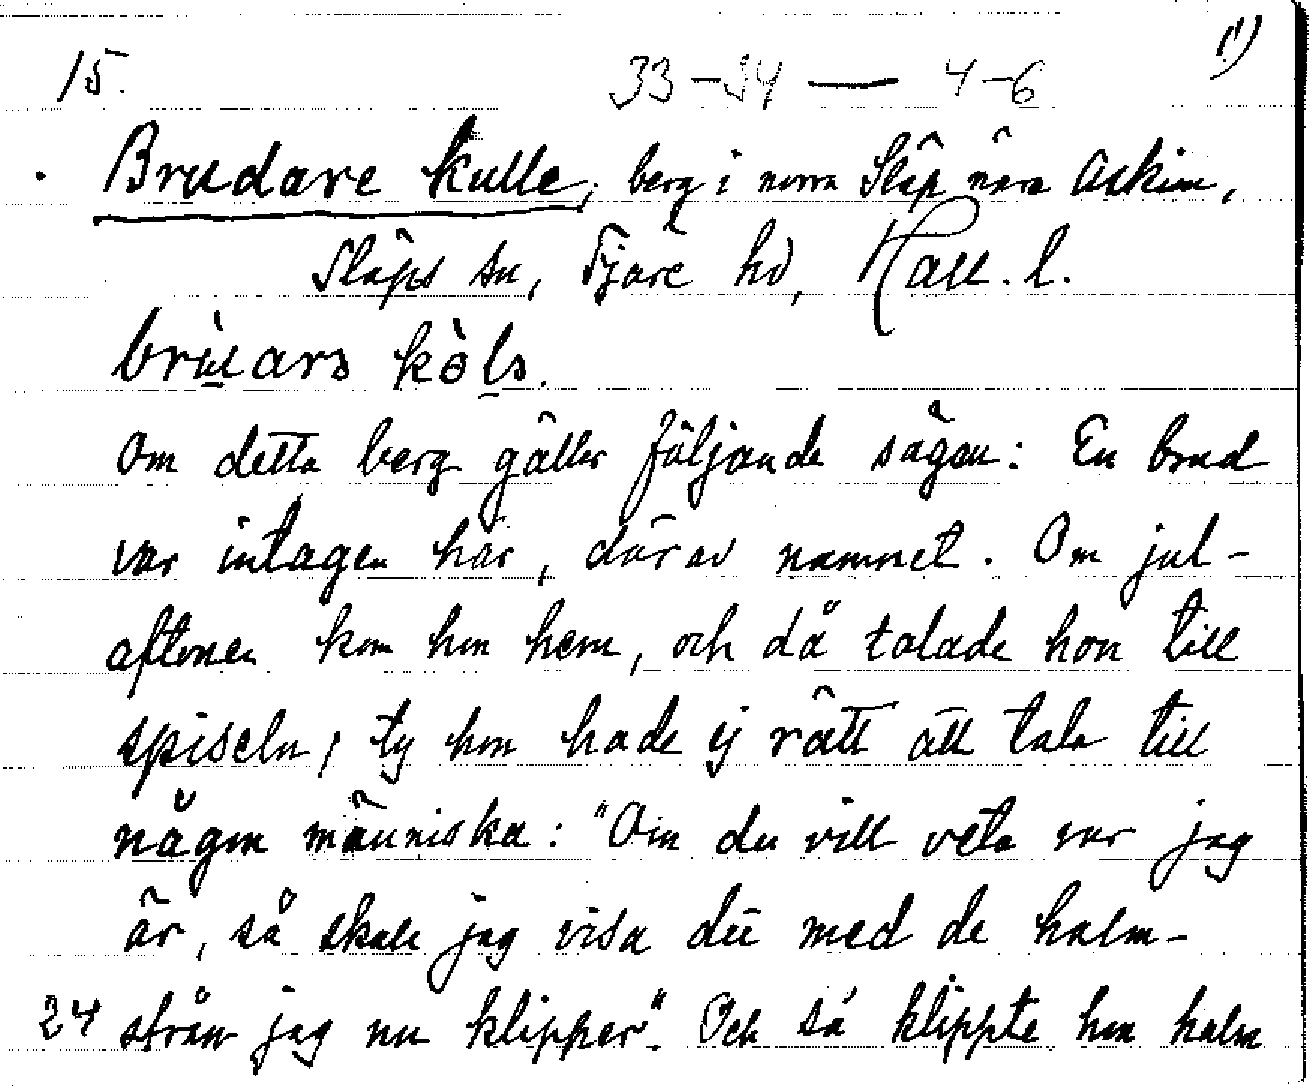 1)
15. 33-34 — 4-6
Brudare kulle, berg i norra Släp nära Askim,
Släps sn, Fjäre hd, Hall. l.
brùɛars kòls.
Om detta berg gäller följande sägen: En brud
var intagen här, därav namnet. Om jul-
aftonen kom hon hem, och då talade hon till
spiseln, ty hon hade ej rätt att tala till
någon människa: "Om du vill veta var jag
är, så skall jag visa dit med de halm-
24 strån jag nu klipper". Och så klippte hon halm